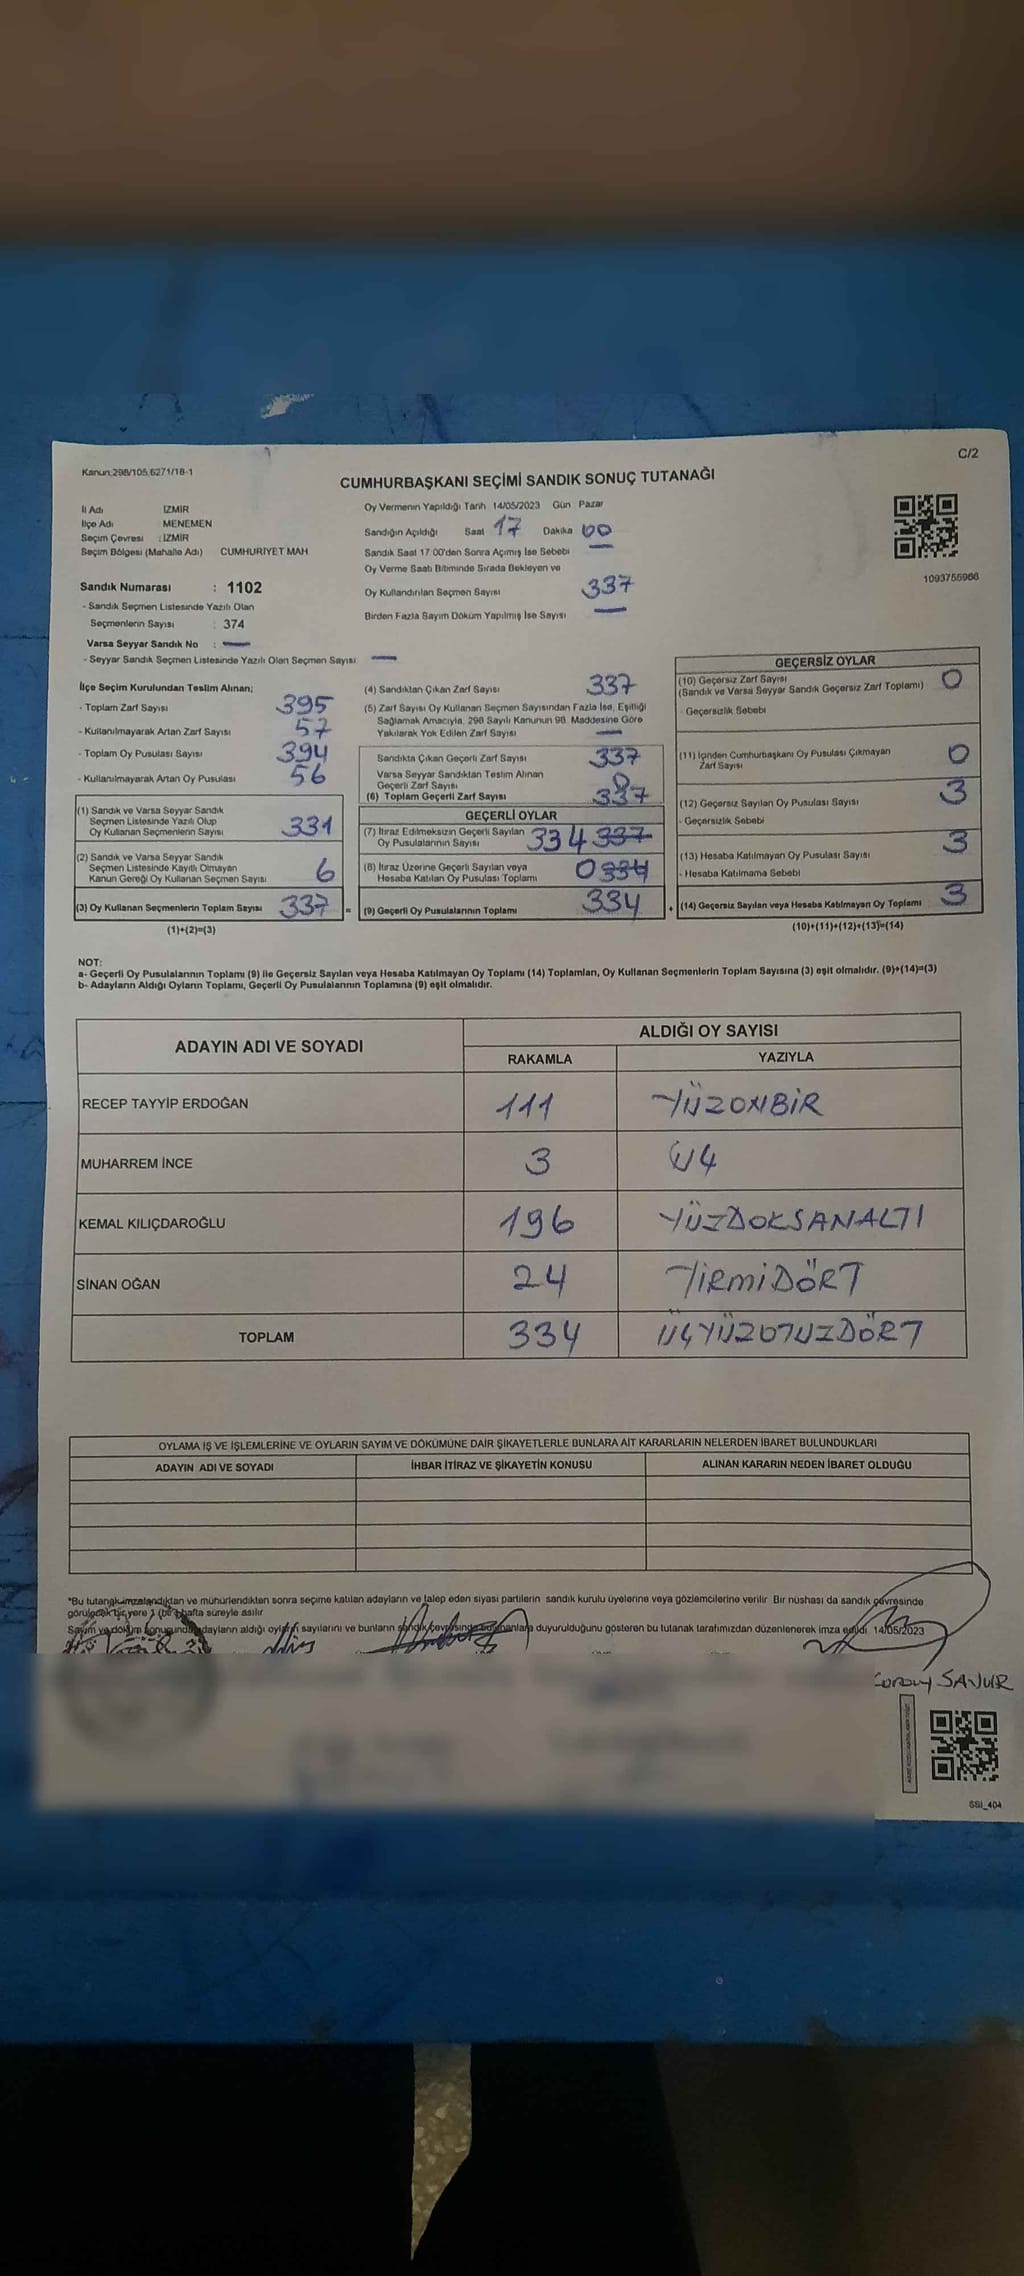 C/2
Kanun:298/105,6271/18-1
CUMHURBAŞKANI SEÇİMİ SANDIK SONUÇ TUTANAĞI
İl Adı İZMİR
İlçe Adı MENEMEN
Seçim Çevresi : İZMİR
Seçim Bölgesi (Mahalle Adı) CUMHURİYET MAH
Sandık Numarası : 1102
- Sandık Seçmen Listesinde Yazılı Olan
Seçmenlerin Sayısı : 374
Varsa Seyyar Sandık No : —
- Seyyar Sandık Seçmen Listesinde Yazılı Olan Seçmen Sayısı —
Oy Vermenin Yapıldığı Tarih 14/05/2023 Gün Pazar
Sandığın Açıldığı Saat 17 Dakika 00
Sandık Saat 17:00'den Sonra Açımış İse Sebebi —
Oy Verme Saati Bitiminde Sırada Bekleyen ve
Oy Kullandırılan Seçmen Sayısı 337
Birden Fazla Sayım Döküm Yapılmış İse Sayısı —
1093755966
İlçe Seçim Kurulundan Teslim Alınan;
- Toplam Zarf Sayısı 395
- Kullanılmayarak Artan Zarf Sayısı 57
- Toplam Oy Pusulası Sayısı 394
- Kullanılmayarak Artan Oy Pusulası 56
(1) Sandık ve Varsa Seyyar Sandık
Seçmen Listesinde Yazılı Olup
Oy Kullanan Seçmenlerin Sayısı 331
(2) Sandık ve Varsa Seyyar Sandık
Seçmen Listesinde Kayıtlı Olmayan
Kanun Gereği Oy Kullanan Seçmen Sayısı 6
(3) Oy Kullanan Seçmenlerin Toplam Sayısı 337 =
(1)+(2)=(3)
(4) Sandıktan Çıkan Zarf Sayısı 337
(5) Zarf Sayısı Oy Kullanan Seçmen Sayısından Fazla İse, Eşitliği
Sağlamak Amacıyla, 298 Sayılı Kanunun 98. Maddesine Göre
Yakılarak Yok Edilen Zarf Sayısı —
Sandıkta Çıkan Geçerli Zarf Sayısı 337
Varsa Seyyar Sandıktan Teslim Alınan
Geçerli Zarf Sayısı 0
(6) Toplam Geçerli Zarf Sayısı 337
GEÇERLİ OYLAR
(7) İtiraz Edilmeksizin Geçerli Sayılan
Oy Pusulalarının Sayısı 334 337
(8) İtiraz Üzerine Geçerli Sayılan veya
Hesaba Katılan Oy Pusulası Toplamı 0 334
(9) Geçerli Oy Pusulalarının Toplamı 334 +
GEÇERSİZ OYLAR
(10) Geçersiz Zarf Sayısı 0
(Sandık ve Varsa Seyyar Sandık Geçersiz Zarf Toplamı)
- Geçersizlik Sebebi
(11) İçinden Cumhurbaşkanı Oy Pusulası Çıkmayan
Zarf Sayısı 0
(12) Geçersiz Sayılan Oy Pusulası Sayısı 3
- Geçersizlik Sebebi
(13) Hesaba Katılmayan Oy Pusulası Sayısı 3
- Hesaba Katılmama Sebebi
(14) Geçersiz Sayılan veya Hesaba Katılmayan Oy Toplamı 3
(10)+(11)+(12)+(13)=(14)
NOT:
a- Geçerli Oy Pusulalarının Toplamı (9) ile Geçersiz Sayılan veya Hesaba Katılmayan Oy Toplamı (14) Toplamları, Oy Kullanan Seçmenlerin Toplam Sayısına (3) eşit olmalıdır. (9)+(14)=(3)
b- Adayların Aldığı Oyların Toplamı, Geçerli Oy Pusulalarının Toplamına (9) eşit olmalıdır.
ADAYIN ADI VE SOYADI ALDIĞI OY SAYISI
RAKAMLA YAZIYLA
RECEP TAYYİP ERDOĞAN 111 YÜZONBİR
MUHARREM İNCE 3 ÜÇ
KEMAL KILIÇDAROĞLU 196 YÜZDOKSANALTI
SİNAN OĞAN 24 YİRMİDÖRT
TOPLAM 334 ÜÇYÜZOTUZDÖRT
OYLAMA İŞ VE İŞLEMLERİNE VE OYLARIN SAYIM VE DÖKÜMÜNE DAİR ŞİKAYETLERLE BUNLARA AİT KARARLARIN NELERDEN İBARET BULUNDUKLARI
ADAYIN ADI VE SOYADI İHBAR İTİRAZ VE ŞİKAYETİN KONUSU ALINAN KARARIN NEDEN İBARET OLDUĞU
*Bu tutanak imzalandıktan ve mühürlendikten sonra seçime katılan adayların ve talep eden siyasi partilerin sandık kurulu üyelerine veya gözlemcilerine verilir. Bir nüshası da sandık çevresinde
görülecek bir yere 1 (bir) hafta süreyle asılır
Sayım ve döküm sonucunda adayların aldığı oyların sayılarını ve bunların sandık çevresinde bulunanlara duyurulduğunu gösteren bu tutanak tarafımızdan düzenlenerek imza edildi. 14/05/2023
SAVUR
SSI_404